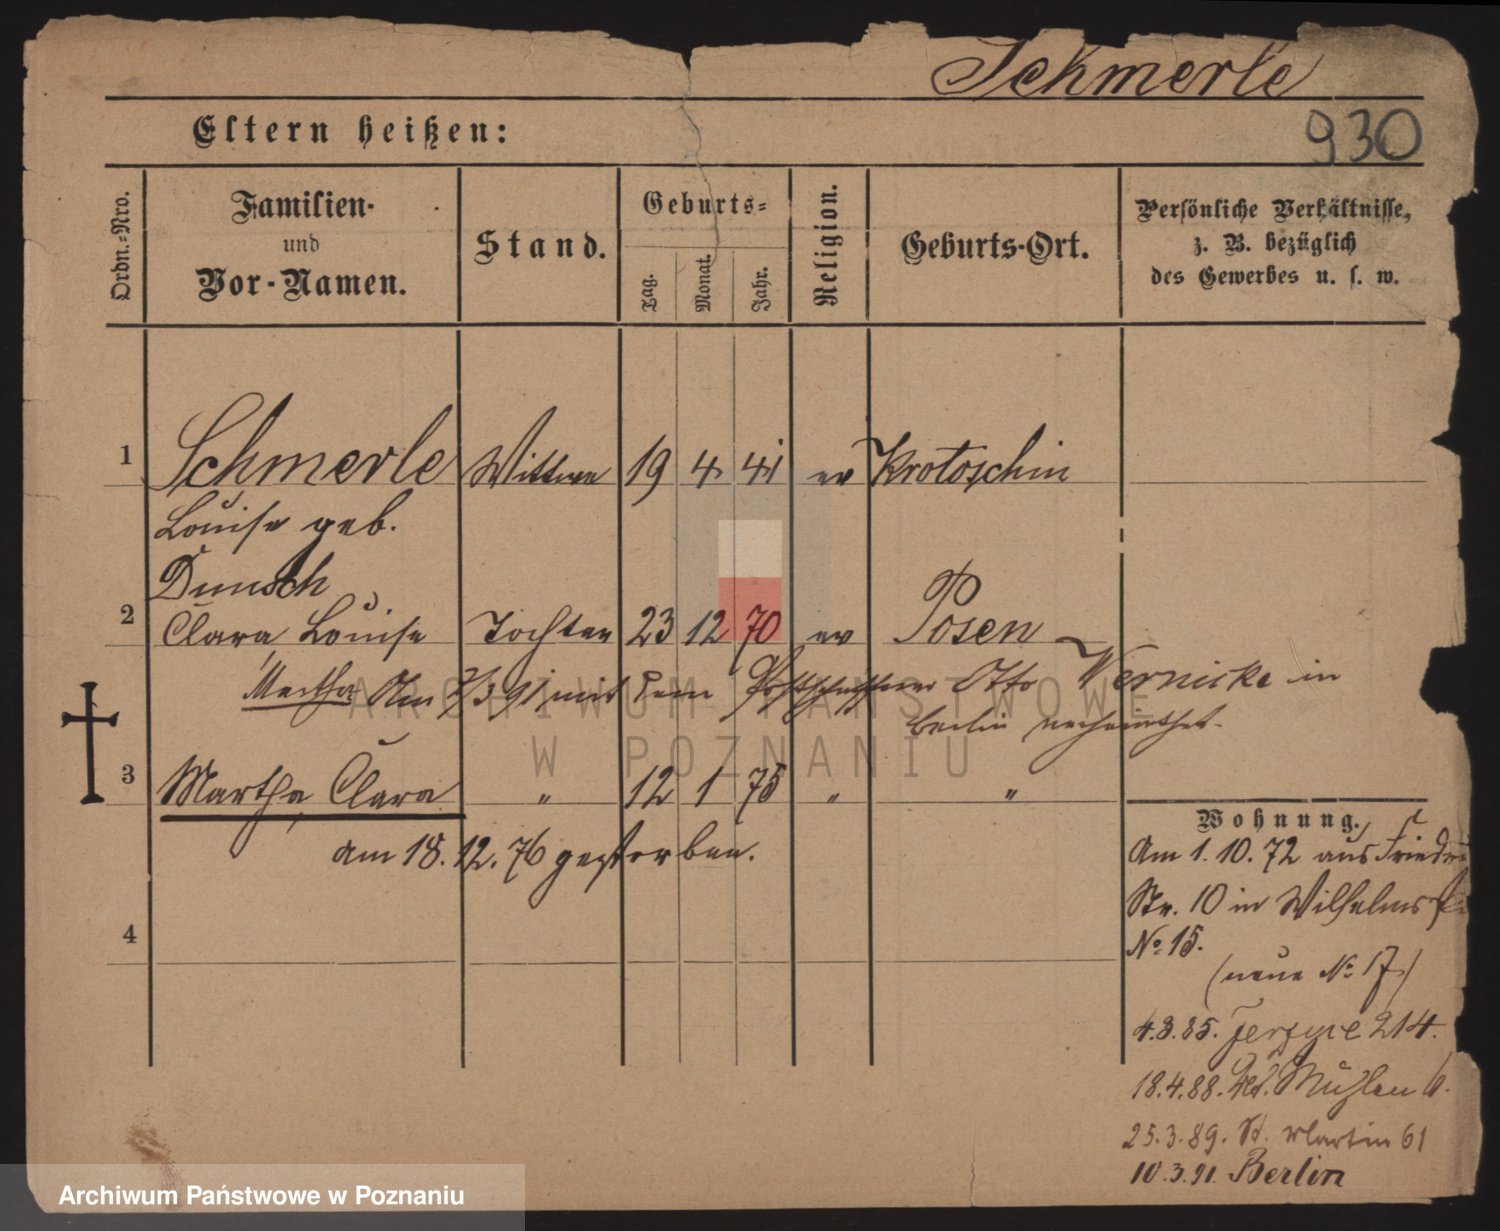 Schmerle
930
Eltern heißen:
Ordn.-Nro.
Familien-
und
Vor-Namen.
Stand.
Geburts-
Tag.
Monat.
Jahr.
Religion.
Geburts-Ort.
Persönliche Verhältnisse,
z. B. bezüglich
des Gewerbes u. s. w.
1 Schmerle Wittwe 19 4 41 ev Krotoschin
Louise geb.
Dunsch
2 Clara, Louise Tochter 23 12 70 ev Posen
Martha Am 7/3 91 mit dem Otto Wernicke in
Berlin verheirathet.
3 Martha, Clara " 12 1 75 " "
am 18. 12. 76 gestorben.
4
Wohnung.
Am 1. 10. 72 aus Friedr
Str. 10 in Wilhelms
No 15.
(neue No 17)
4.3.85. Jerzyce 214.
18.4.88. Mühlen 6.
25.3.89. St. Martin 61
10.3.91. Berlin
ARCHIWUM PAŃSTWOWE
W POZNANIU
Archiwum Państwowe w Poznaniu